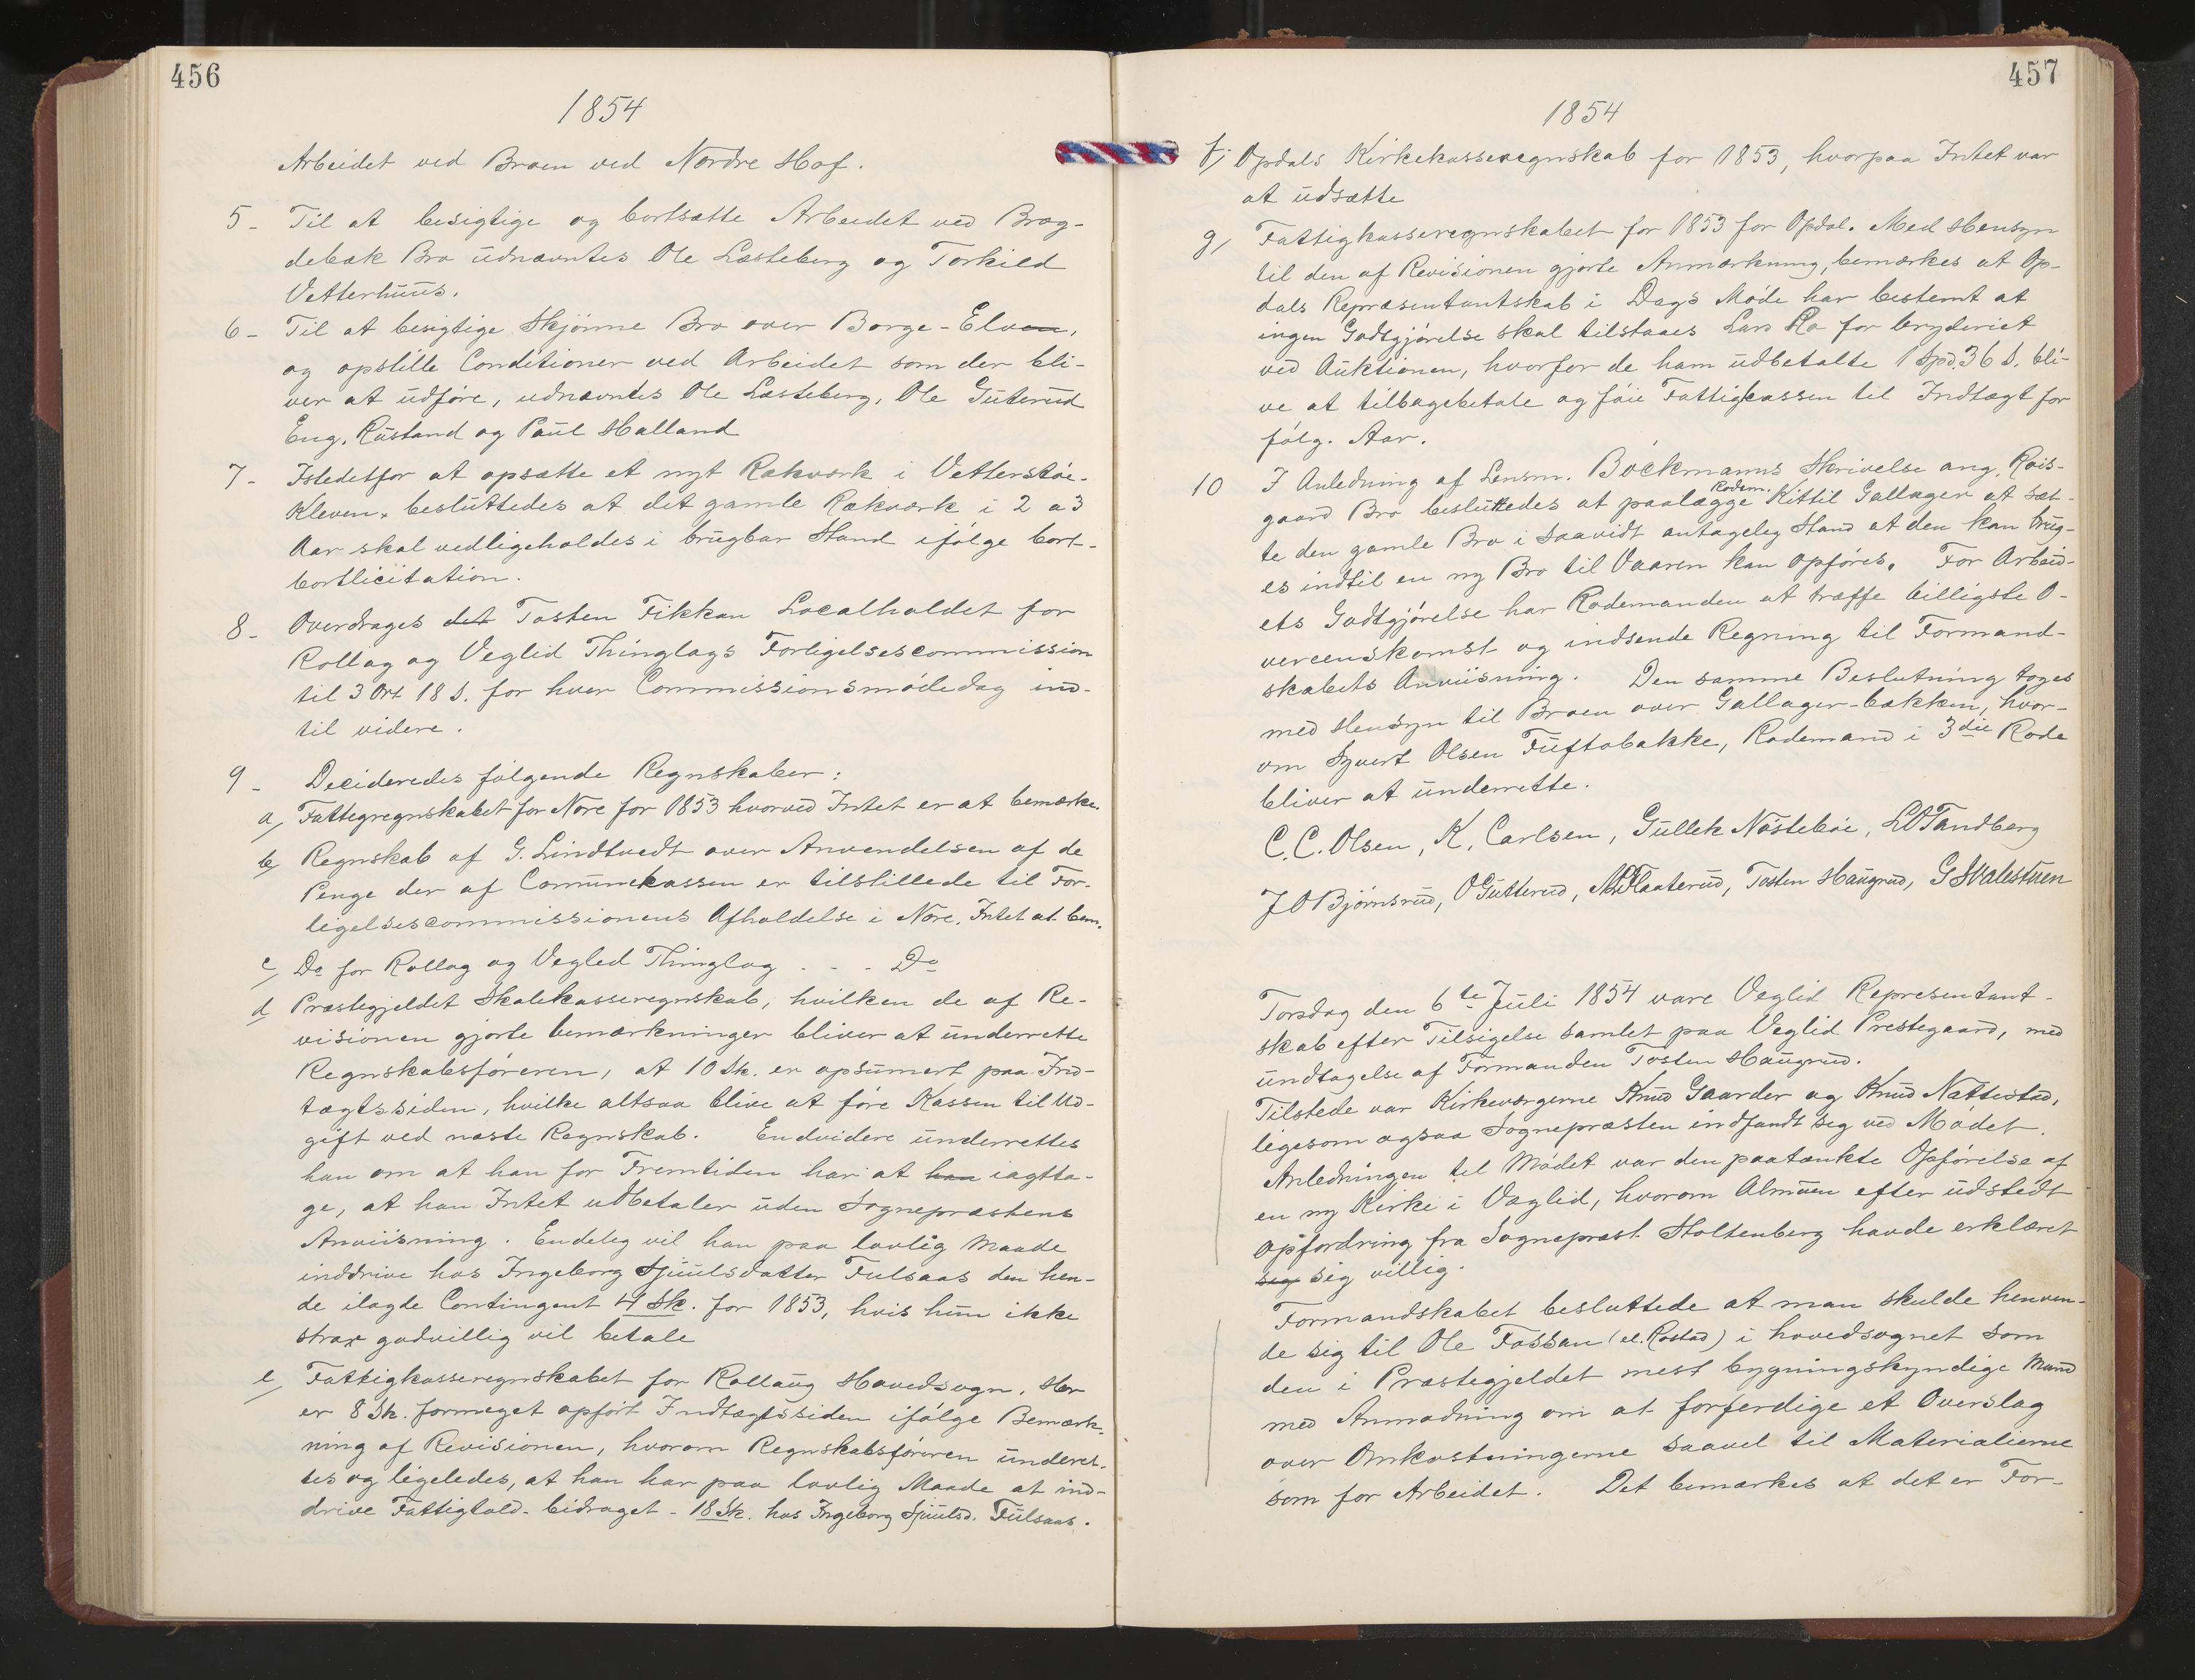 456
1854
Arbeidet ved Broen ved Nordre Hof.
5- Til at besigtige og bortsætte Arbeidet ved Bræg-
debæk Bro udnævntes Ole Læsteberg og Torkild
Vetterhuus.
6- Til at besigtige Skjönne Bro over Borge-Elven,
og opstille Conditioner ved Arbeidet som der bli-
ver at udföre, udnævntes Ole Læsteberg, Ole Guterud
Eng. Rustand og Paul Halland
7- Istedetfor at opsætte et nyt Rækværk i Vetterstöe-
Kleven, besluttedes at det gamle Rækværk i 2 a 3
Aar skal vedligeholdes i brugbar Stand ifölge bort-
bortlicitation.
8- Overdrages det Tosten Fikkan Localholdet for
Rollag og Veglid Thinglags Forligelsescommission
til 3 Ort 18 s. for hver Commissionsmödedag ind-
til videre.
9- Decideredes fölgende Regnskaber:
a, Fattigregnskabet for Nore for 1853 hvorved Intet er at bemærke.
b, Regnskab af G. Lindtvedt over Anvendelsen af de
Penge der af Comunekassen er tilstillede til For-
ligelsescommissionens Afholdelse i Nore. Intet at bem.
c, Do for Rollag og Vegled Thinglag - - - Do
d, Præstegjeldet Skolekasseregnskab, hvilken de af Re-
visionen gjorte bemærkninger bliver at underrette
Regnskabsföreren, at 10 Sk. er opsumert paa Ind-
tægtssiden, hvilke altsaa blive at före Kassen til Ud-
gift ved næste Regnskab. Endvidere underrettes
han om at han for Fremtiden har at han iagtta-
ge, at han Intet udbetaler uden Sognepræstens
Anviisning. Endelig vil han paa lovlig Maade
inddrive hos Ingeborg Sjuulsdatter Fulsaas den hen-
de ilagde Contingent 4 Sk. for 1853, hvis hun ikke
strax godvillig vil betale
e, Fattigkasseregnskabet for Rollaug Hovedsogn. Her
er 8 Sk. formeget opfört Indtægtssiden ifölge Bemærk-
ning af Revisionen, hvorom Regnskabsföreren underet-
tes og ligeledes, at han har paa lovlig Maade at ind-
drive Fattigtold-bidraget - 18 Sk. hos Ingeborg Sjuulsd. Fulsaas.
457
1854
f, Opdals Kirkekasseregnskab for 1853, hvorpaa Intet var
at udsætte
g, Fattigkasseregnskabet for 1853 for Opdal. Med Hensyn
til den af Revisionen gjorte Anmærkning, bemærkes at Op-
dals Repræsentantskab i Dags Möde har bestemt at
ingen Godtgjörelse skal tilstaaes Lars Ro for bryderiet
ved Auktionen, hvorfor de ham udbetalte 1 Spd. 36 s. bli-
ve at tilbagebetale og föie Fattigkassen til Indtægt for
fölg. Aar.
10 I Anledning af Lensm. Böckmanns Skrivelse ang. Rois-
gaard Bro besluttedes at paalægge Rodem. Kittil Gallager at sæt-
te den gamle Bro i saavidt antagelig Stand at den kan brug-
es indtil en ny Bro til Vaaren kan opföres. For Arbeid-
ets Godtgjörelse har Rodemanden at træffe billigste O-
vereenskomst og indsende Regning til Formand-
skabets Anviisning. Den samme Beslutning toges
med Hensyn til Broen over Gallager-bækken, hvor-
om Syvert Olsen Tuftobakke, Rodemand i 3die Rode
bliver at underrette.
C. C. Olsen, K. Carlsen, Gullek Nösteböe, L O Tandberg
J O Björnsrud, O Gutterud, Flaaterud, Tosten Haugrud, G Hvalestuen
Torsdag den 6te Juli 1854 vare Veglid Representant-
skab efter Tilsigelse samlet paa Veglid Prestegaard, med
undtagelse af Formanden Tosten Haugrud.
Tilstede var Kirkeværgerne Knud Gaarder og Knud Nattestad,
ligesom ogsaa Sognepræsten indfandt sig ved Mödet.
Anledningen til Mödet var den paatænkte Opförelse af
en ny Kirke i Væglid, hvorom Almuen efter udstedt
Opfordring fra Sogneprest Stoltenberg havde erklæret
sig sig villig.
Formandskabet besluttede at man skulde henven-
de sig til Ole Fossan (el. Rostad) i hovedsognet som
den i Præstegjeldet mest bygningskyndige Mand
med Anmodning om at forferdige et Overslag
over Omkostningerne saavel til Materialierne
som for Arbeidet. Det bemærkes at det er For-